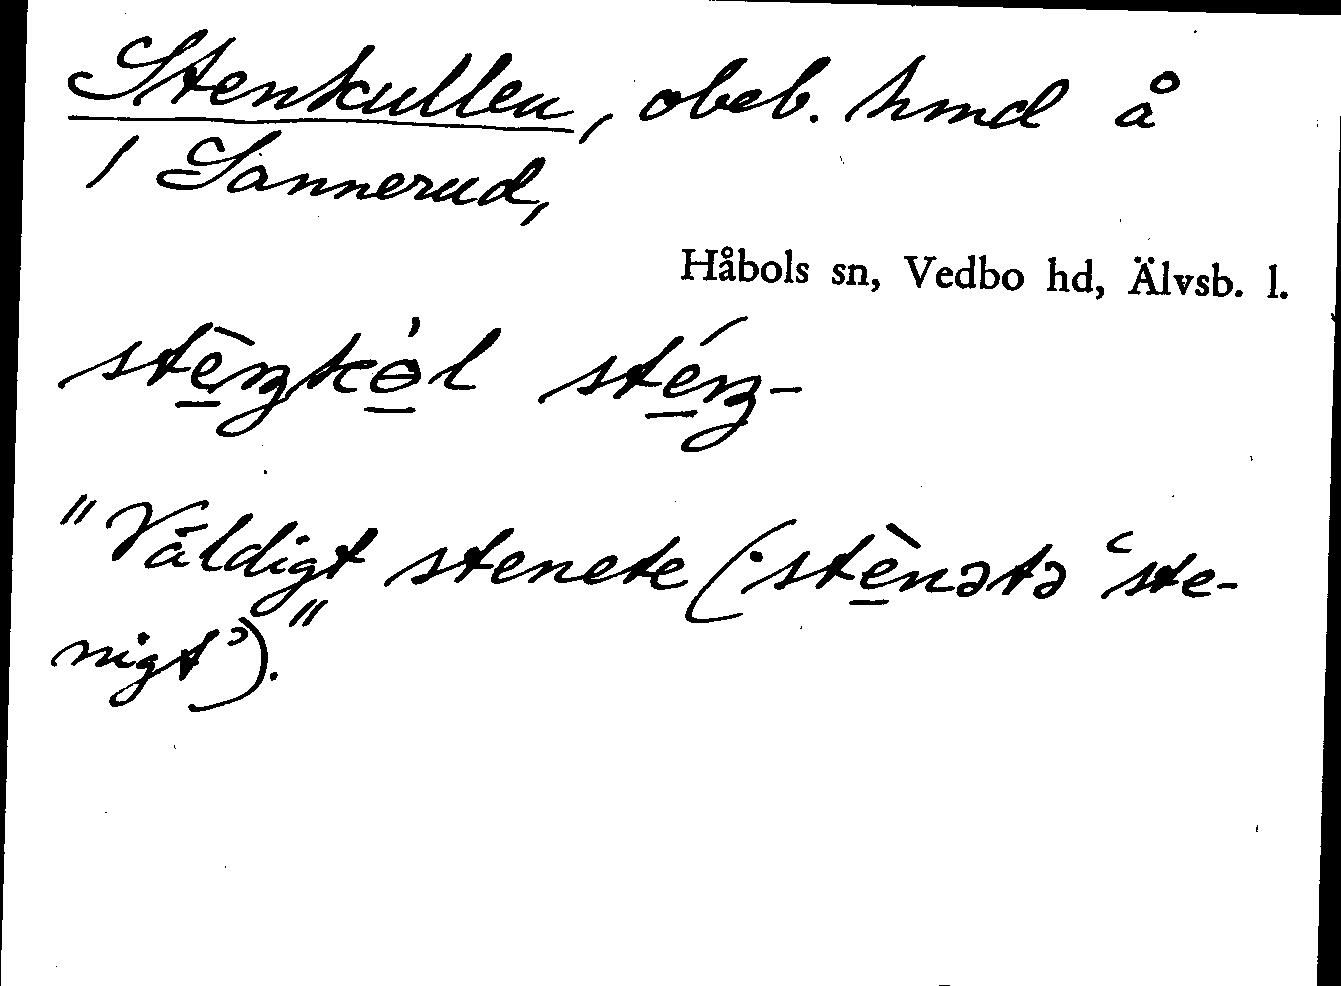 Stenkullen, obeb. hmd å
1 Sannerud,
Håbols sn, Vedbo hd, Älvsb. l.
stè̱ŋkɵ̱̀l sté̱ŋ-
"Väldigt stenete (: stè̱nətə ‘ste-
nigt’)."